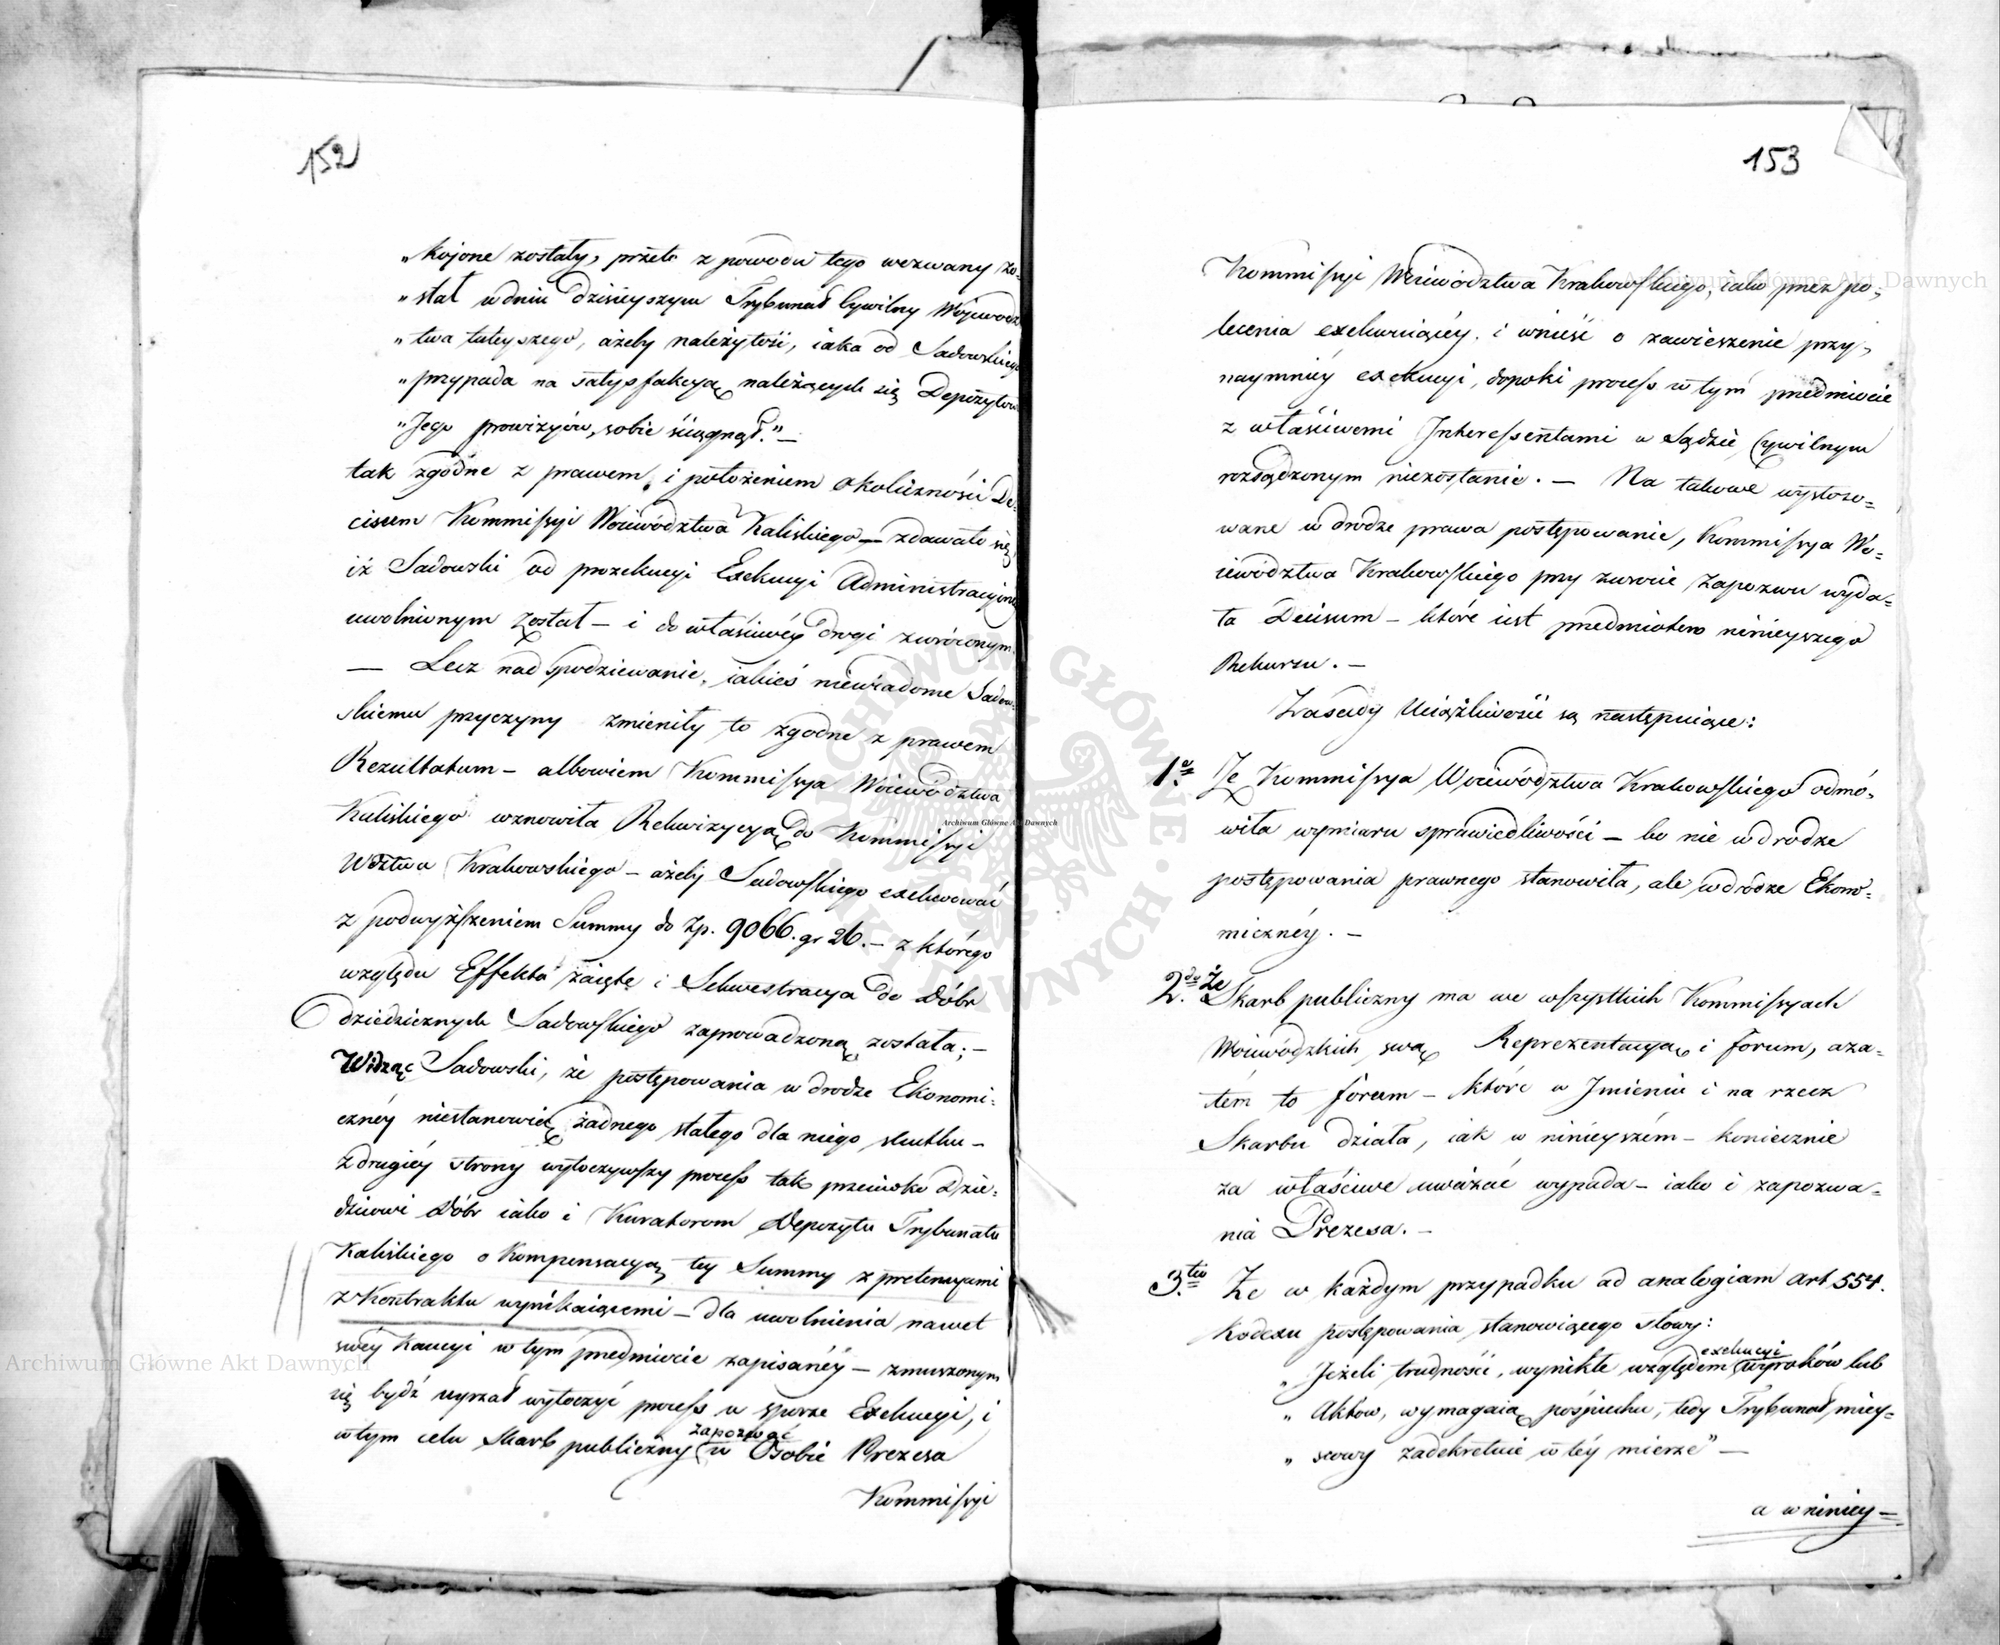 152
„kojone zostały, przeto z powodu tego wezwany zo-
„stał w dniu dzisieyszym Trybunał Cywilny Wojewodz
„twa tuteyszego, ażeby należytość, iaka od Sadowskiego
„przypada na satysfakcyą należących się Depozytow
„Jego prowizyów, sobie ściągnął." —
tak zgodne z prawem, i położeniem okoliczności De-
cisum Kommissyi Woiewództwa Kaliskiego — zdawało się
iż Sadowski od prozekucyi Exekucyi Administracyiney
uwolnionym został — i do właściwéy drogi zwróconym.
— Lecz nad spodziewanie, iakieś niewiadome Sadow-
skiemu przyczyny zmieniły to zgodne z prawem
Rezultatum — albowiem Kommissya Woiewództwa
Kaliskiego wznowiła Rekwizycyą do Kommissyi
Wdztwa Krakowskiego — ażeby Sadowskiego exekwować
z podwyższeniem Summy do Zp. 9066. gr 26. — z którego
względu Effekta zaięte i Sekwestracya do Dóbr
dziedzicznych Sadowskiego zaprowadzoną została; —
Widząc Sadowski, że postępowania w drodze Ekonomi-
cznéy niestanowią żadnego stałego dla niego skutku —
z drugiéy strony wytoczywszy process tak przeciwko Dzie-
dzicowi Dóbr iako i Kuratorom Depozytu Trybunału
Kaliskiego o Kompensacyą tey Summy z pretensyami
z Kontraktu wynikaiącemi — dla uwolnienia nawet
swéy Kaucyi w tym przedmiocie zapisanéy — zmuszonym
się bydź uyrzał wytoczyć process w sporze Exekucyi, i
w tym celu Skarb publiczny zapozwać w Osobie Prezesa
Kommissyi
153
Kommissyi Woiewództwa Krakowskiego, iako przez po-
lecenia exekwuiącéy. i wnieść o zawieszenie przy-
naymniéy exekucyi, dopoki process w tym przedmiocie
z właściwemi Interessentami w Sądzie Cywilnym
rozsądzonym niezostanie. — Na takowe wystoso-
wane w drodze prawa postępowanie, Kommissya Wo-
iewództwa Krakowskiego przy zwrocie Zapozwu wyda-
ła Decisum — które iest przedmiotem ninieyszego
Rekursu. —
Zasady Uciążliwości są następuiące:
1e Że Kommissya Woiewództwa Krakowskiego odmó-
wiła wymiaru sprawiedliwości — bo nie w drodze
postępowania prawnego stanowiła, ale w drodze Ekono-
micznéy. —
2do Że Skarb publiczny ma we wszystkich Kommissyach
Woiewódzkich swą Reprezentacyą i forum, aza-
tém to forum — które w Imieniu i na rzecz
Skarbu działa, iak w ninieyszém — koniecznie
za właściwe uważać wypada — iako i zapozwa-
nia Prezesa. —
3tio Że w każdym przypadku ad analogiam art 554.
Kodexu postępowania stanowiącego słowy:
„Jeżeli trudności, wynikłe względem exekucyi wyroków lub
„Aktów, wymagaią pośpiechu, tedy Trybunał miey-
„scowy zadekretuie w téy mierze" —
a w niniey —
Archiwum Główne Akt Dawnych
Archiwum Główne Akt Dawnych
Archiwum Główne Akt Dawnych